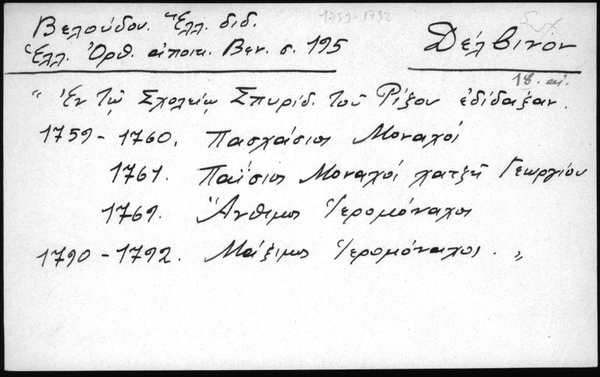 Βελούδου. Ἑλλ. διδ.
1759-1792
Ἑλλ. Ὀρθ. ἀποικ. Βεν. σ. 195
Δέλβινον
18. αἰ.
"Ἐν τῷ Σχολείῳ Σπυρίδ. τοῦ Ρίζου ἐδίδαξαν.
1759-1760. Πασχάσιος Μοναχός
1761. Παΐσιος Μοναχός χατζῆ Γεωργίου
1769. Ἄνθιμος Ἱερομόναχος
1790-1792. Μάξιμος Ἱερομόναχος. "